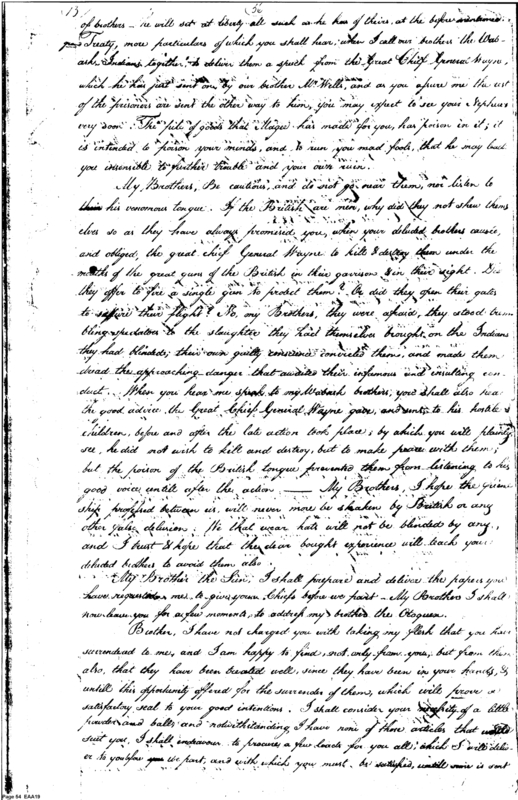 13
of brothers - he will set at liberty all such as he has of theirs, at the before mentioned
Treaty, more particulars of which you shall hear, when I call our brothers the Wab-
ash Indians together, to deliver them a speech from the Great Chief General Wayne,
which he has just sent on, by our brother Mr. Wells, and as you assure me the rest
of the prisoners are sent the other way to him, you may expect to see your Nephews
very soon. The pile of goods that Magee has made for you, has poison in it; it
is intended to poison your minds, and to run you mad fools, that he may lead
you insensible to further trouble and your own ruin.
My Brothers, Be cautious, and do not go near them, nor listen to
his venomous tongue. If the British are men, why did they not shew thems
elves so as they have always promised you, when your deluded brothers caused,
and obliged, the great chief General Wayne to kill & destroy them under the
mouths of the great guns of the British in their garrison & in their sight. Did
they offer to fire a single gun to protect them? Or did they open their gates
to their flight? No, my Brothers, they were afraid, they stood trem
bling spectators to the slaughter they had themselves brought on the Indians
they had blinded, their own guilty conscience convicted them, and made them
dread the approaching danger that awaited their infamous and insulting con
duct. When you hear me speak to my Wabash brothers, you shall also hear
the good advice the Great Chief General Wayne gave, and sent to his hostile
children, before and after the late action took place; by which you will plainly
see, he did not wish to kill and destroy, but to make peace with them;
but the poison of the British tongue prevented them from listening to his
good voice untill after the action. — My Brothers, I hope the friend
ship professed between us, will never more be shaken by British or any
other false delusion; We that wear hats will not be blinded by any,
and I trust & hope that the dear bought experience will teach your
deluded brothers to avoid them also.
My Brother the I shall prepare and deliver the papers you
have requested me to give your Chiefs before we part - My Brothers I shall
now leave you for a few moments, to address my brother the
Brother, I have not charged you with taking my flesh that you have
surrendered to me, and I am happy to find, not only from you, but from them
also, that they have been treated well, since they have been in your hands, &
untill this opportunity offered for the surrender of them, which will prove a
satisfactory seal to your good intentions. I shall consider your of a little
powder and ball; and notwithstanding I have none of those articles that would
suit you, I shall endeavour to procure a few loads for you all; which I will deliv
er to you before we part, and with which you must be satisfied, untill more is sent
Page 54 EAA19